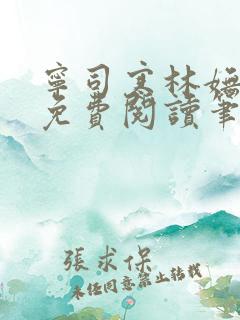 寧司寒林嫿
免費閱讀筆
張求保
未經同意禁止轉載